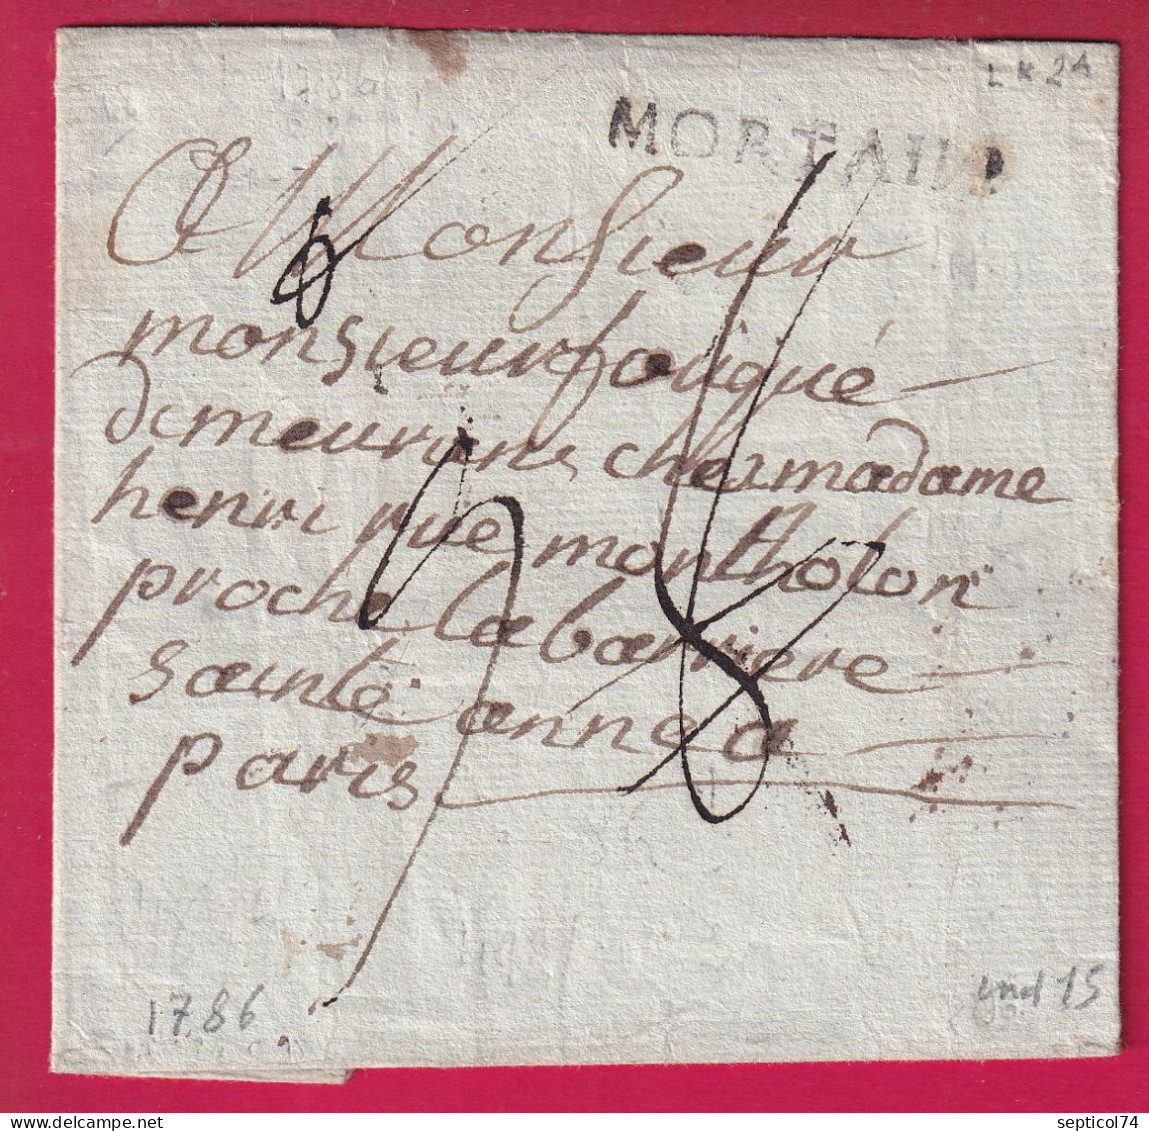 1786
LK 24
MORTAIN
A Monsieur
monsieur fouqué
demeurans chez madame
henri rue montholon
proche la barriere
sainte anne a
paris
8
1786
ind 15
septicol74